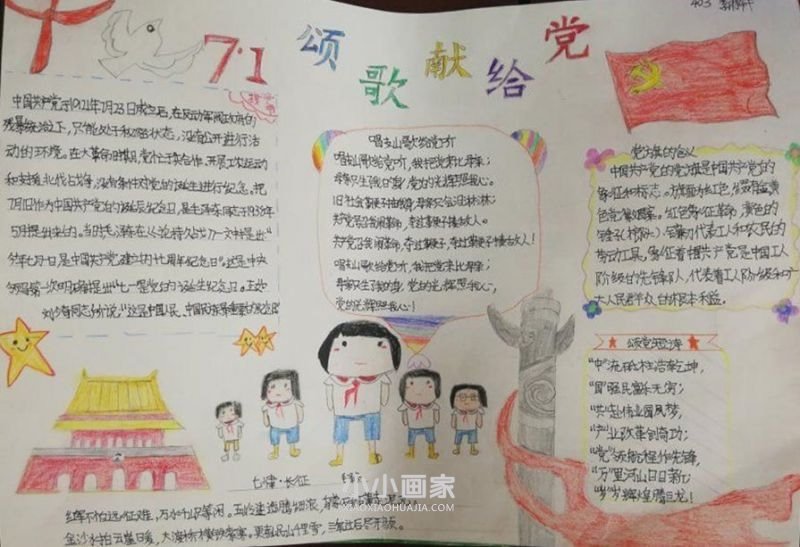 403
7·1
颂歌献给党
中国共产党于1921年7月23日成立后,在反动军阀政府的
残暴统治之下,只能处于秘密状态,没有公开进行活
动的环境。在大革命时期,党忙于国共合作、开展工农运动
和支援北伐战争,没有条件对党的诞生进行纪念。把
7月1日作为中国共产党的诞辰纪念日,是毛泽东同志于1938年
5月提出来的。当时,毛泽东在《论持久战》一文中提出“
今年七月一日是中国共产党建立的十七周年纪念日”这是中央
唱支山歌给党听
唱支山歌给党听,我把党来比母亲;
母亲只生我的身,党的光辉照我心。
旧社会鞭子抽我身,母亲只会泪淋淋;
共产党号召我闹革命,夺过鞭子揍敌人!
共产党号召我闹革命,夺过鞭子揍敌人!
唱支山歌给党听,我把党来比母亲;
母亲只生我的身,党的光辉照我心,
党的光辉照我心!
党旗的含义
中国共产党的党旗是中国共产党的
象征和标志。旗面为红色,缀有金黄
色党徽图案。红色象征革命,黄色的
锤子、镰刀代表工人和农民的
劳动工具,象征着中国共产党是中国工人
阶级的先锋队,代表着工人阶级和广
大人民群众的根本利益。
颂党短诗
“中”流砥柱浩乾坤,
“国”强民富永无穷;
“共”赴伟业圆风梦,
“产”业改革创奇功;
“党”领航程作先锋,
“万”里河山日日新
“岁”岁辉煌腾巨龙!
七律·长征
红军不怕远征难,万水千山只等闲。五岭逶迤腾细浪,
金沙水拍云崖暖,大渡桥横铁索寒。更喜岷山千里雪,三军过后尽开颜。
小小画家
XIAOXIAOHUAJIA.COM